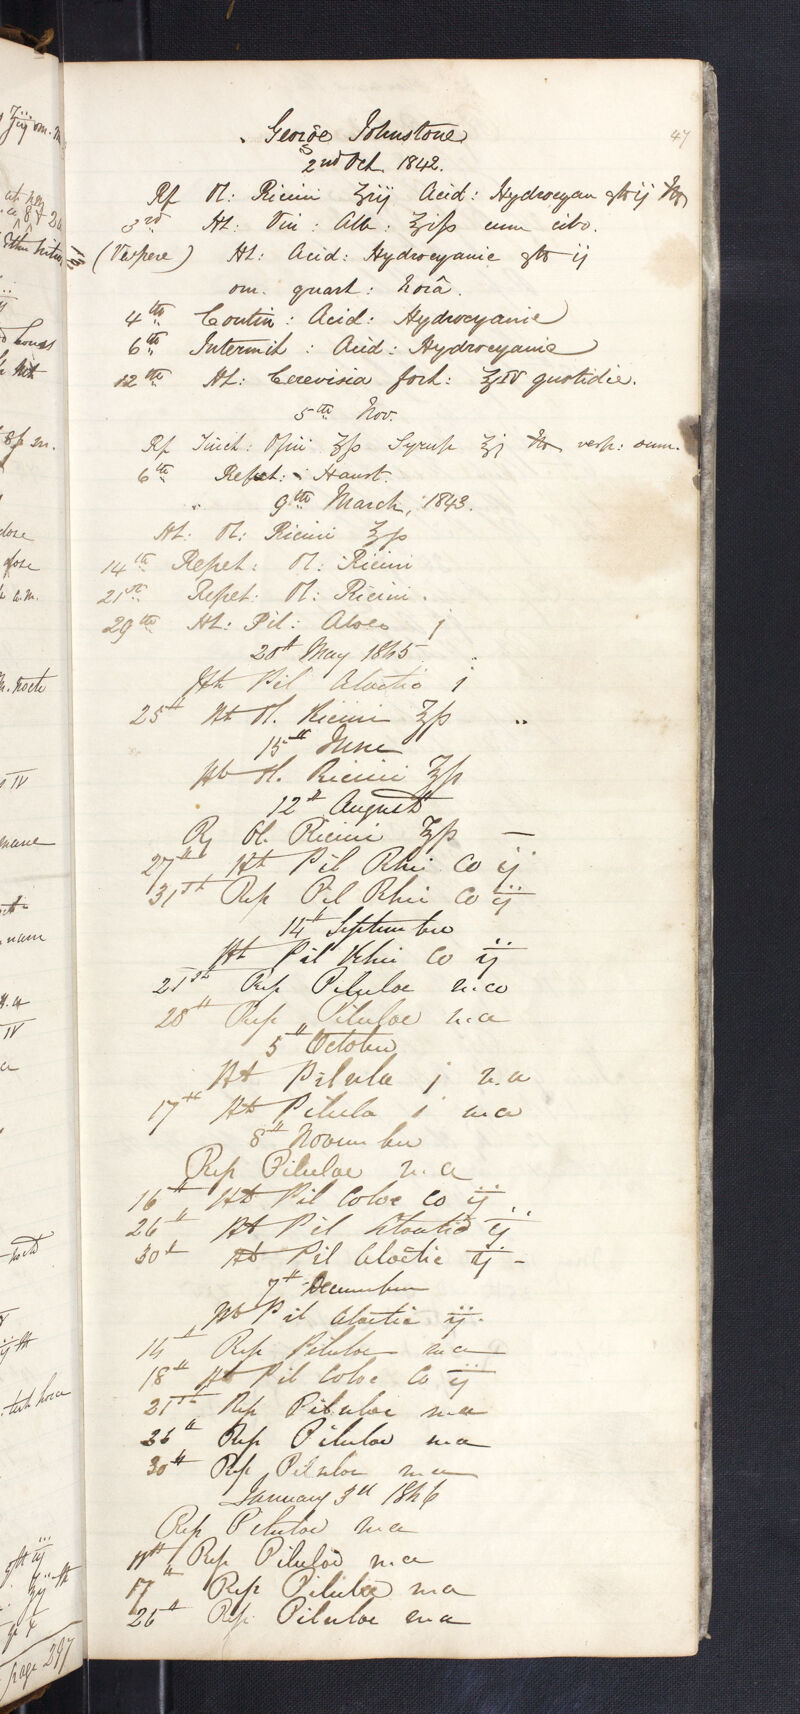 47
George Johnstone
2nd Oct. 1842.
Rf Ol: Ricini ʒiij Acid: Hydrocyan gtt ij
3rd Ht: Vin: Alb: ʒiſs cum cibo.
(Vespere) Ht: Acid: Hydrocyanic gtt ij
om. quart: horâ.
4th Contin: Acid: Hydrocyanic
6th Intermit: Acid: Hydrocyanic
12th Ht: Cerevisia fort: ℥IV quotidie.
5th Nov.
Rf Tinct: Opii ʒſs Syrup ʒj vesp: sum.
6th Repet: Haust.
9th March, 1843.
Ht: Ol: Ricini ℥ſs
14th Repet: Ol: Ricini
21st Repet: Ol: Ricini.
29th Ht: Pil: Aloes j
20th May 1845
Ht Pil Aloetic j
25th Ht Ol. Ricini ℥ſs
15th June
Ht Ol. Ricini ℥ſs
12th August
Rf Ol. Ricini ℥ſs —
27th Ht Pil Rhei Co ij
31st Rep Pil Rhei Co ij
14th September
Ht Pil Rhei Co ij
21st Rep Pilulae m.a
28th Rep Pilulae m.a
5th October
Ht Pilula j m.a
17th Ht Pilula j m.a
8th November
Rep Pilulae m.a
16th Ht Pil Coloc Co ij
26th Ht Pil Aloetic ij
30th Ht Pil Aloetic ij –
7th December
Ht Pil Aloetic ij.
14th Rep Pilulae m.a
18th Ht Pil Coloc Co ij
21st Rep Pilulae m.a
26th Rep Pilulae m.a
30th Rep Pilulae m.a
January 3rd 1846
Rep Pilulae m.a
11th Rep Pilulae m.a
17th Rep Pilulae m.a
26th Rep. Pilulae m.a
page 297